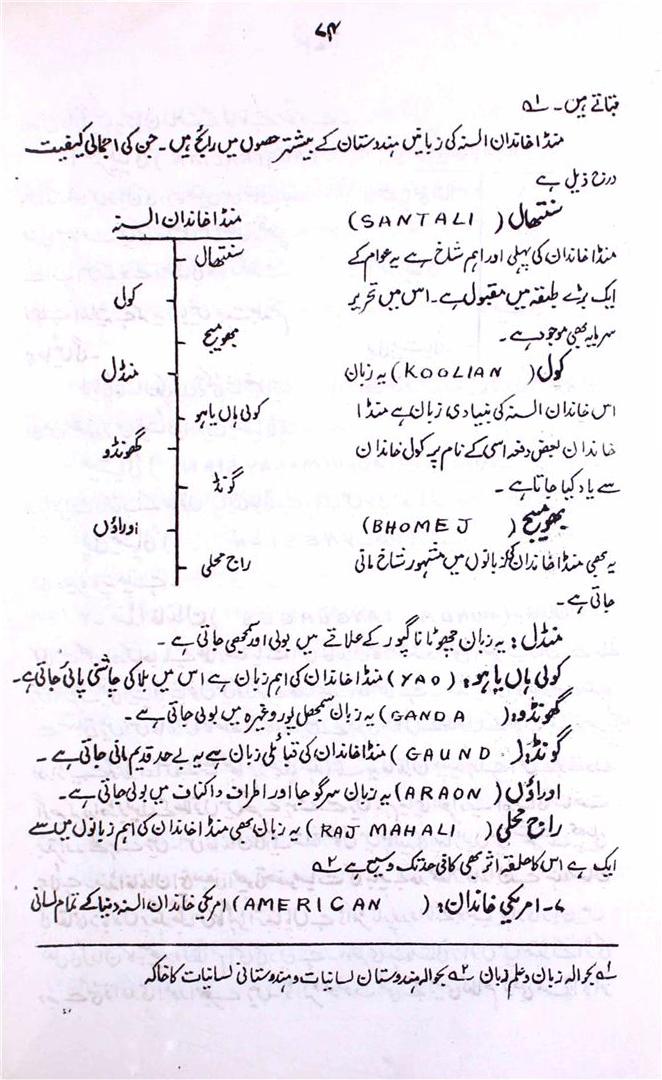 ۷۴
بتاتے ہیں ۔ ۱ے
منڈا خاندان السنہ کی زبانیں ہندوستان کے بیشتر حصوں میں رائج ہیں ۔ جن کی اجمالی کیفیت
درج ذیل ہے
سنتھال (SANTALI)
منڈا خاندان کی پہلی اور اہم شاخ ہے یہ عوام کے
ایک بڑے طبقہ میں مقبول ہے ۔ اس میں تحریر
سرمایہ بھی موجود ہے ۔
کول (KOOLIAN) یہ زبان
اس خاندان السنہ کی بنیادی زبان ہے منڈا
خاندان بعض دفعہ اسی کے نام پر کول خاندان
سے یاد کیا جاتا ہے ۔
بھومیج (BHOMEJ)
یہ بھی منڈا خاندان کی زبانوں میں مشہور شاخ مانی
جاتی ہے ۔
منڈا خاندان السنہ
سنتھال
کول
بھومیج
منڈل
کولی ہاں یا ہو
گھونڈو
گونڈ
اوراؤں
راج محلی
منڈل : یہ زبان چھوٹا ناگپور کے علاقے میں بولی اور سمجھی جاتی ہے ۔
کولی ہاں یا ہو : (YAO) منڈا خاندان کی اہم زبان ہے اس میں بلا کی چاشنی پائی جاتی ہے ۔
گھونڈو : (GANDA) یہ زبان سمبھل پور وغیرہ میں بولی جاتی ہے ۔
گونڈ : (GAUND) منڈا خاندان کی قبائلی زبان ہے یہ بے حد قدیم مانی جاتی ہے ۔
اوراؤں (ARAON) یہ زبان سرگوجا اور اطراف و اکناف میں بولی جاتی ہے ۔
راج محلی (RAJ MAHALI) یہ زبان بھی منڈا خاندان کی اہم زبانوں میں سے
ایک ہے اس کا حلقہ اثر بھی کافی حد تک وسیع ہے ۲ے
۷۔ امریکی خاندان : (AMERICAN) امریکی خاندان السنہ دنیا کے تمام لسانی
۱ے بحوالہ زبان و علم زبان ۲ے بحوالہ ہندوستان لسانیات و ہندوستانی لسانیات کا خاکہ